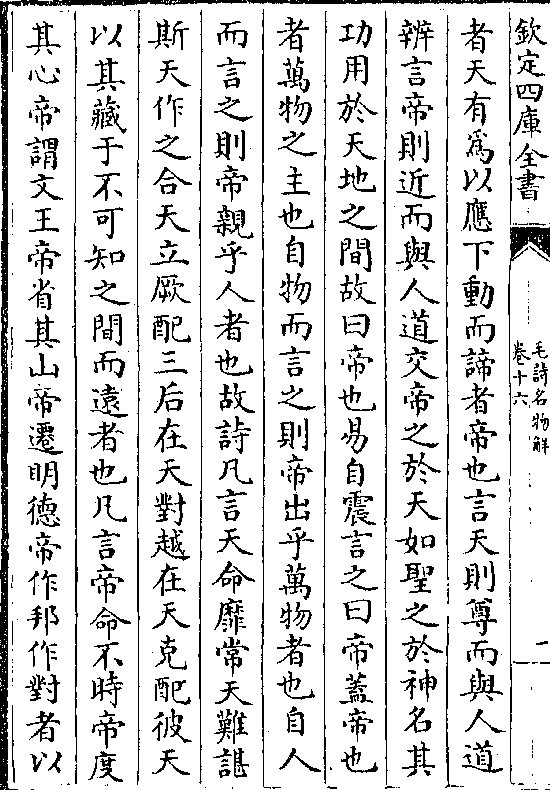 欽定四庫全書
毛詩名物解
卷十六
一
者天有為以應下動而諦者帝也言天則尊而與人道
辨言帝則近而與人道交帝之於天如聖之於神名其
功用於天地之間故曰帝也易自震言之曰帝蓋帝也
者萬物之主也自物而言之則帝出乎萬物者也自人
而言之則帝親乎人者也故詩凡言天命靡常天難諶
斯天作之合天立厥配三后在天對越在天克配彼天
以其藏于不可知之間而遠者也凡言帝命不時帝度
其心帝謂文王帝省其山帝遷明德帝作邦作對者以